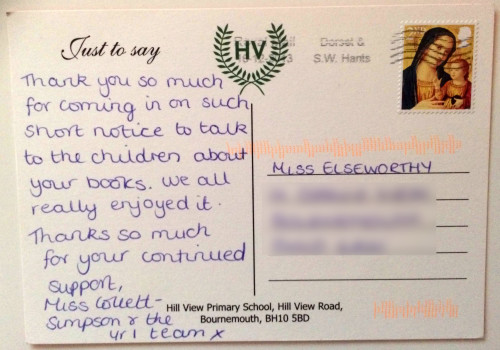 Just to say
HV
Dorset &
S.W. Hants
Thank you so much
for coming in on such
short notice to talk
to the children about
your books. We all
really enjoyed it.
Thanks so much
for your continued
support,
Miss Collett-
Simpson & the
Yr 1 team x
MISS ELSEWORTHY
Hill View Primary School, Hill View Road,
Bournemouth, BH10 5BD